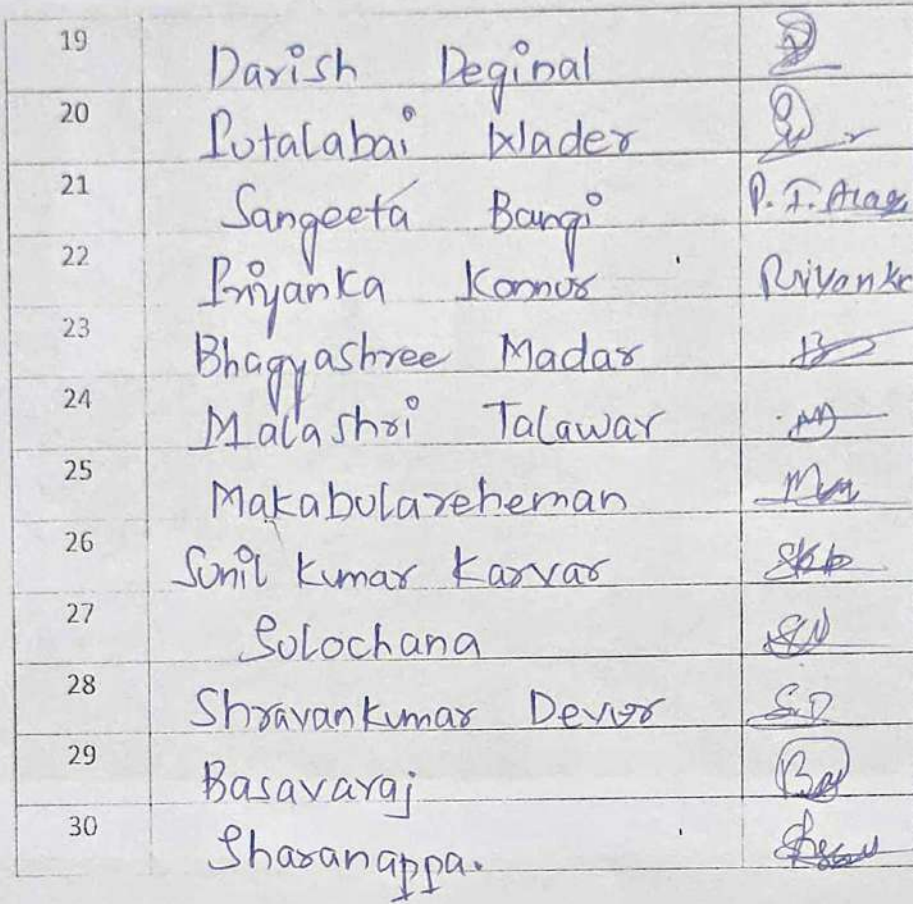 19 Darish Deginal
20 Putalabai Wader
21 Sangeeta Bangi P. I. Arag
22 Priyanka Konnur Priyanka
23 Bhagyashree Madar
24 Malashri Talawar
25 Makabulareheman
26 Sunil kumar karvar
27 Sulochana
28 Shravankumar Devur S.D
29 Basavaraj
30 Sharanappa.